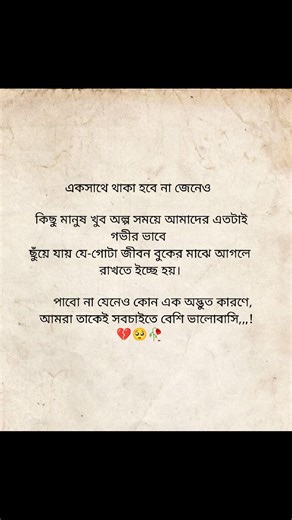 একসাথে থাকা হবে না জেনেও
কিছু মানুষ খুব অল্প সময়ে আমাদের এতটাই
গভীর ভাবে
ছুঁয়ে যায় যে-গোটা জীবন বুকের মাঝে আগলে
রাখতে ইচ্ছে হয়।
পাবো না যেনেও কোন এক অদ্ভুত কারণে,
আমরা তাকেই সবচাইতে বেশি ভালোবাসি,,,!
💔🥺🥀